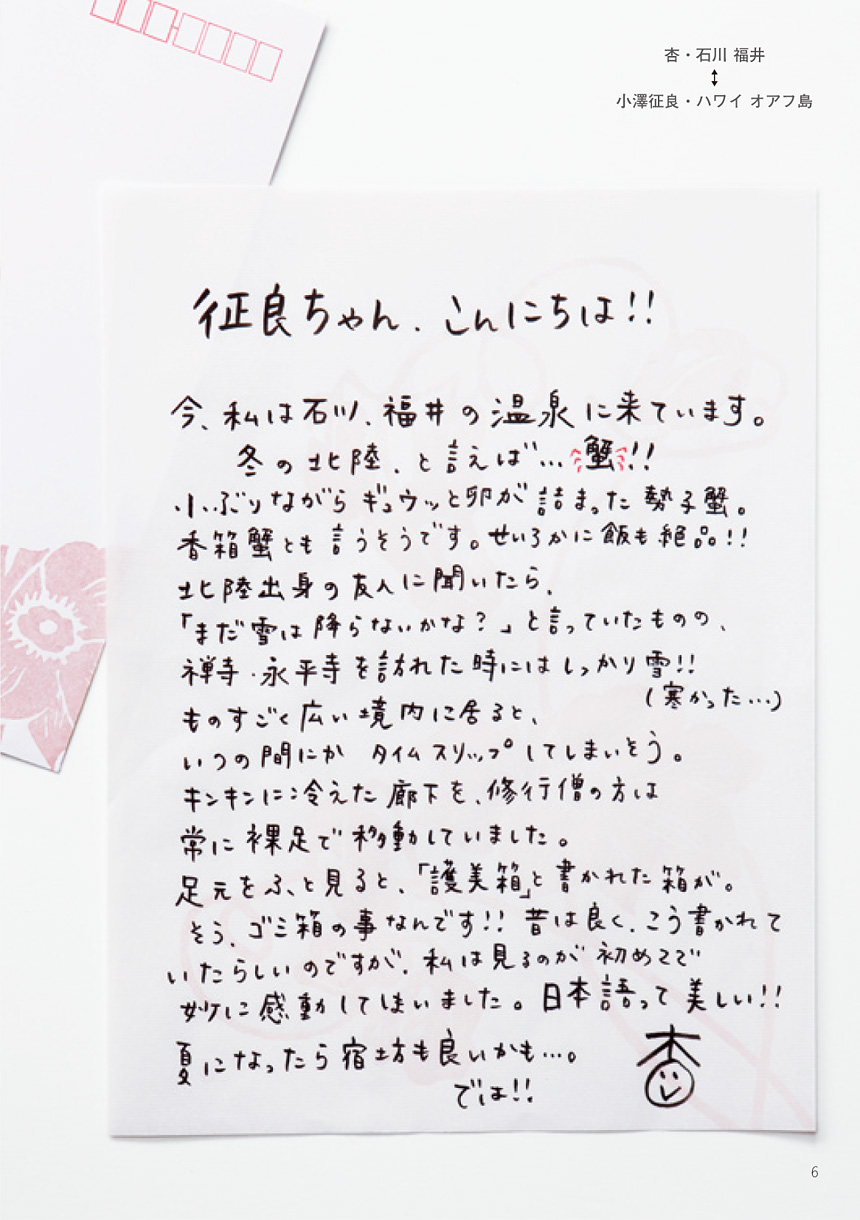 杏・石川 福井
↕
小澤征良・ハワイ オアフ島
征良ちゃん、こんにちは!!
今、私は石川、福井の温泉に来ています。
冬の北陸、と言えば…蟹!!
小ぶりながらギュウッと卵が詰まった勢子蟹。
香箱蟹とも言うそうです。せいろかに飯も絶品!!
北陸出身の友人に聞いたら、
「まだ雪は降らないかな?」と言っていたものの、
禅寺・永平寺を訪れた時にはしっかり雪!!
(寒かった…)
ものすごく広い境内に居ると、
いつの間にか タイムスリップしてしまいそう。
キンキンに冷えた廊下を、修行僧の方は
常に裸足で移動していました。
足元をふと見ると、「護美箱」と書かれた箱が。
そう、ゴミ箱の事なんです!! 昔は良く、こう書かれて
いたらしいのですが、私は見るのが初めてで
妙に感動してしまいました。日本語って美しい!!
夏になったら宿坊も良いかも…。
では!!
杏
6